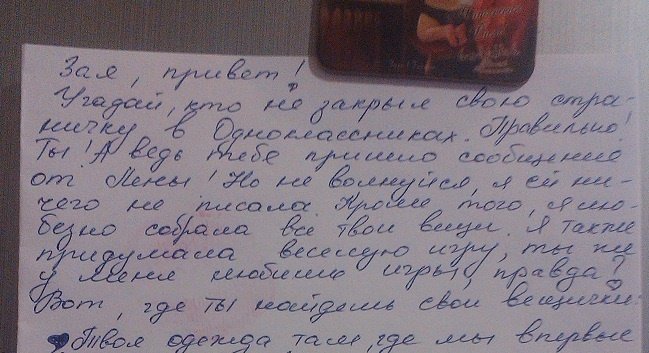 Зая, привет!
Угадай, кто не закрыл свою стра-
ничку в Одноклассниках. Правильно!
Ты! А ведь тебе пришло сообщение
от Лены! Но не волнуйся, я ей ни-
чего не писала. Кроме того, я лю-
безно собрала все твои вещи. Я также
придумала веселую игру, ты же
у меня любишь игры, правда?
Вот, где ты найдешь свои вещички:
Твоя одежда там, где мы впервые